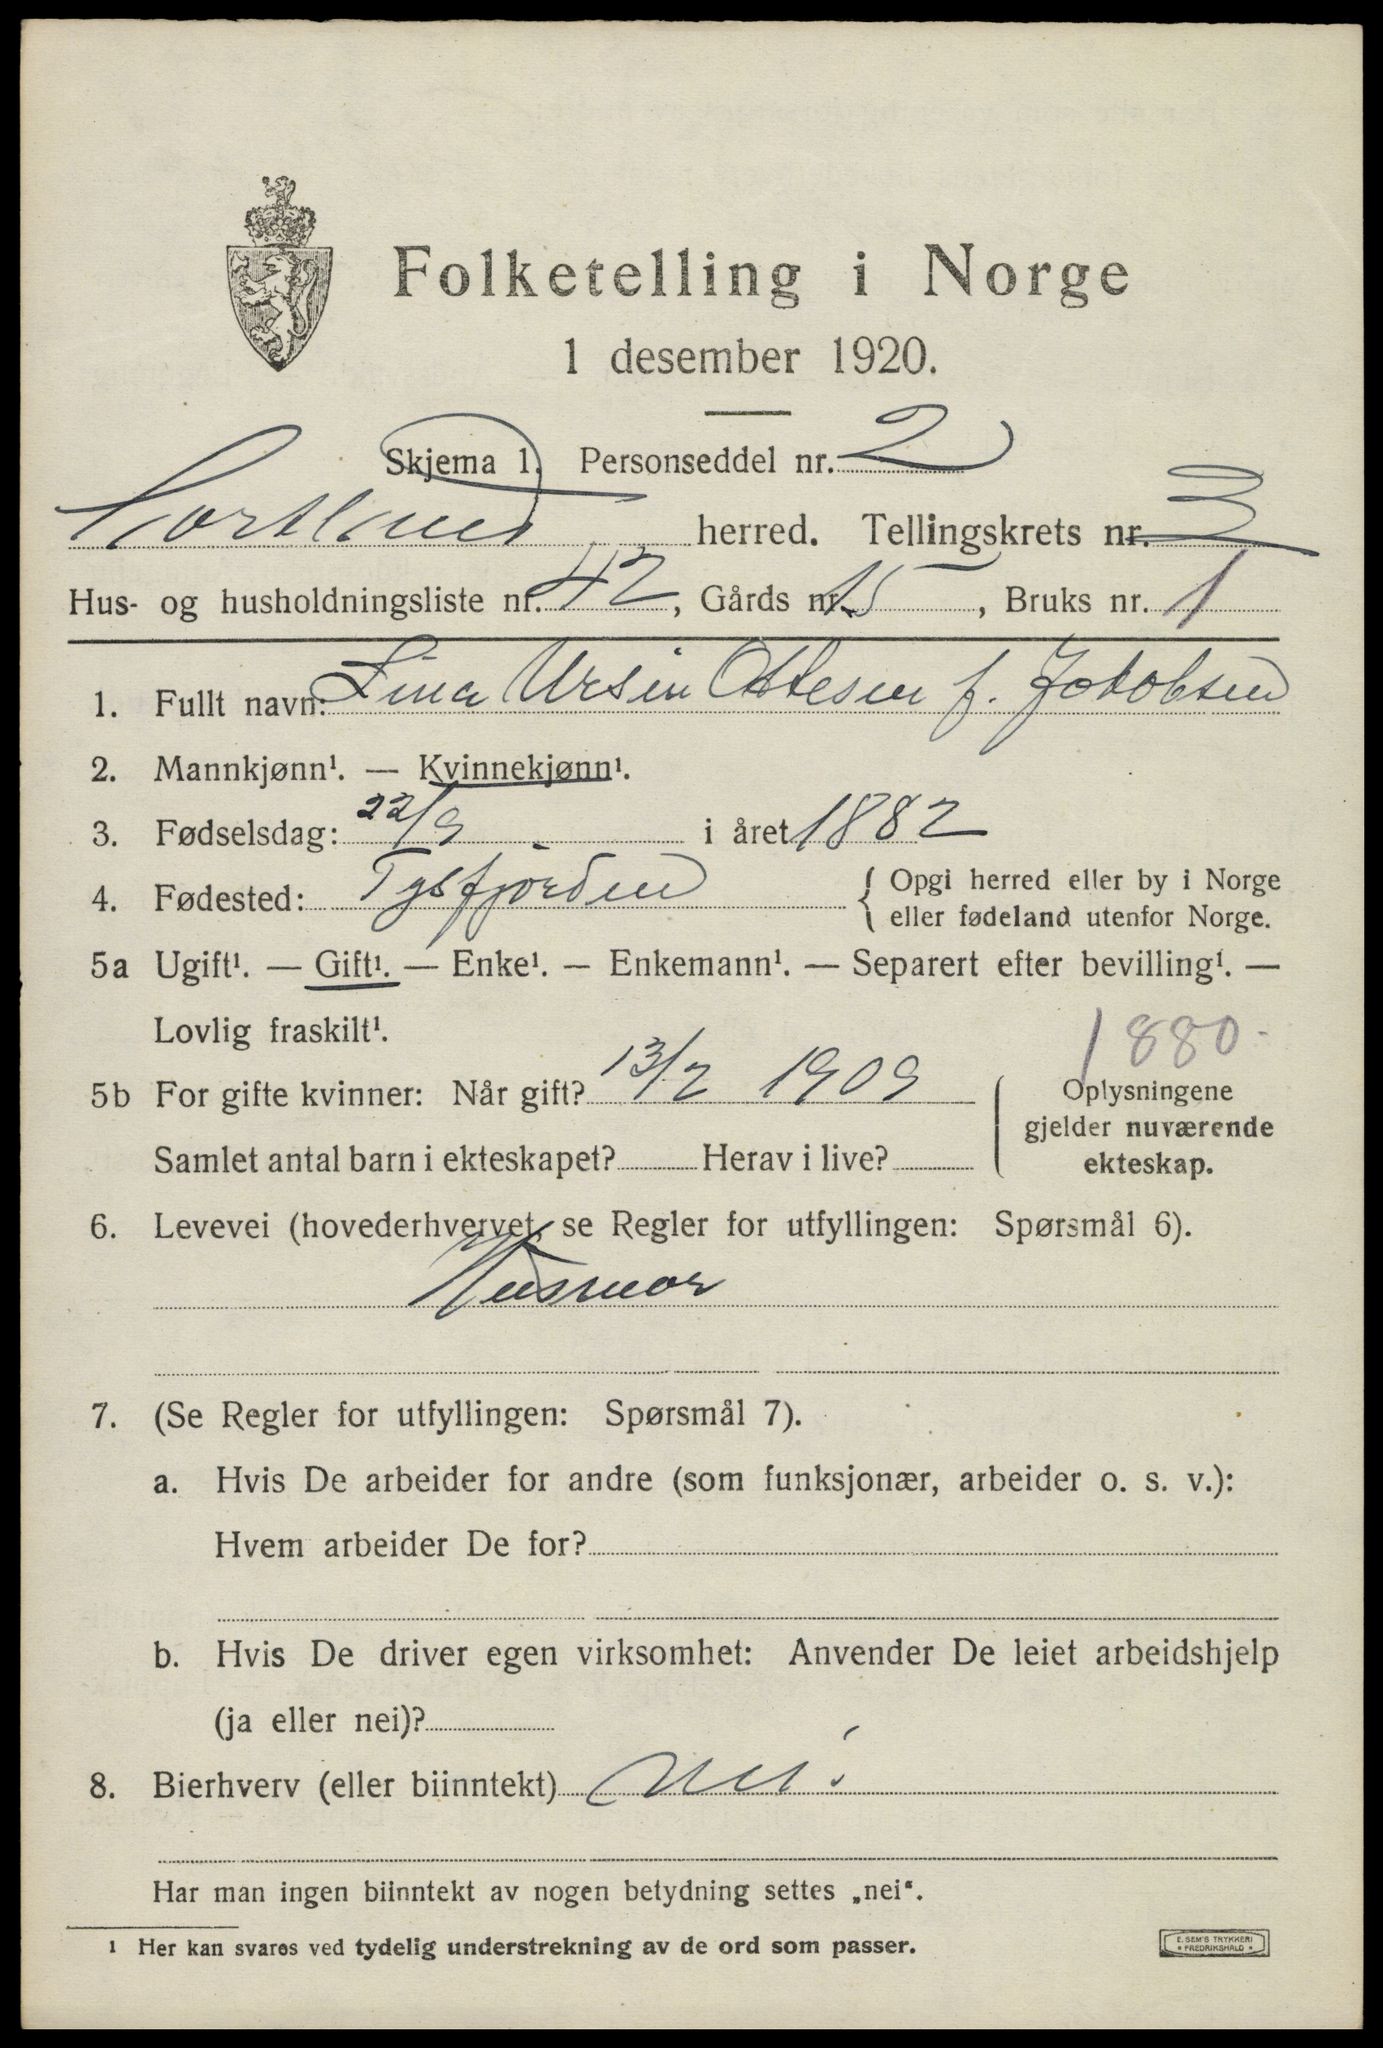 Folketelling i Norge
1 desember 1920.
Skjema 1. Personseddel nr. 2
Sortland herred. Tellingskrets nr. 3
Hus- og husholdningsliste nr. 42, Gårds nr. 15, Bruks nr. 1
1. Fullt navn: Lina Ursin Ottesen f. Jakobsen
2. Mannkjønn¹. — Kvinnekjønn¹.
3. Fødselsdag: 22/9 i året 1882
4. Fødested: Tysfjorden { Opgi herred eller by i Norge
eller fødeland utenfor Norge.
5a Ugift¹. — Gift¹. — Enke¹. — Enkemann¹. — Separert efter bevilling¹. —
Lovlig fraskilt¹.
1880.
5b For gifte kvinner: Når gift? 13/2 1909
Samlet antal barn i ekteskapet? Herav i live?
Oplysningene
gjelder nuværende
ekteskap.
6. Levevei (hovederhvervet, se Regler for utfyllingen: Spørsmål 6).
Husmor
7. (Se Regler for utfyllingen: Spørsmål 7).
a. Hvis De arbeider for andre (som funksjonær, arbeider o. s. v.):
Hvem arbeider De for?
b. Hvis De driver egen virksomhet: Anvender De leiet arbeidshjelp
(ja eller nei)?
8. Bierhverv (eller biinntekt) nei.
Har man ingen biinntekt av nogen betydning settes „nei“.
1 Her kan svares ved tydelig understrekning av de ord som passer.
E. SEM'S TRYKKERI
FREDRIKSHALD